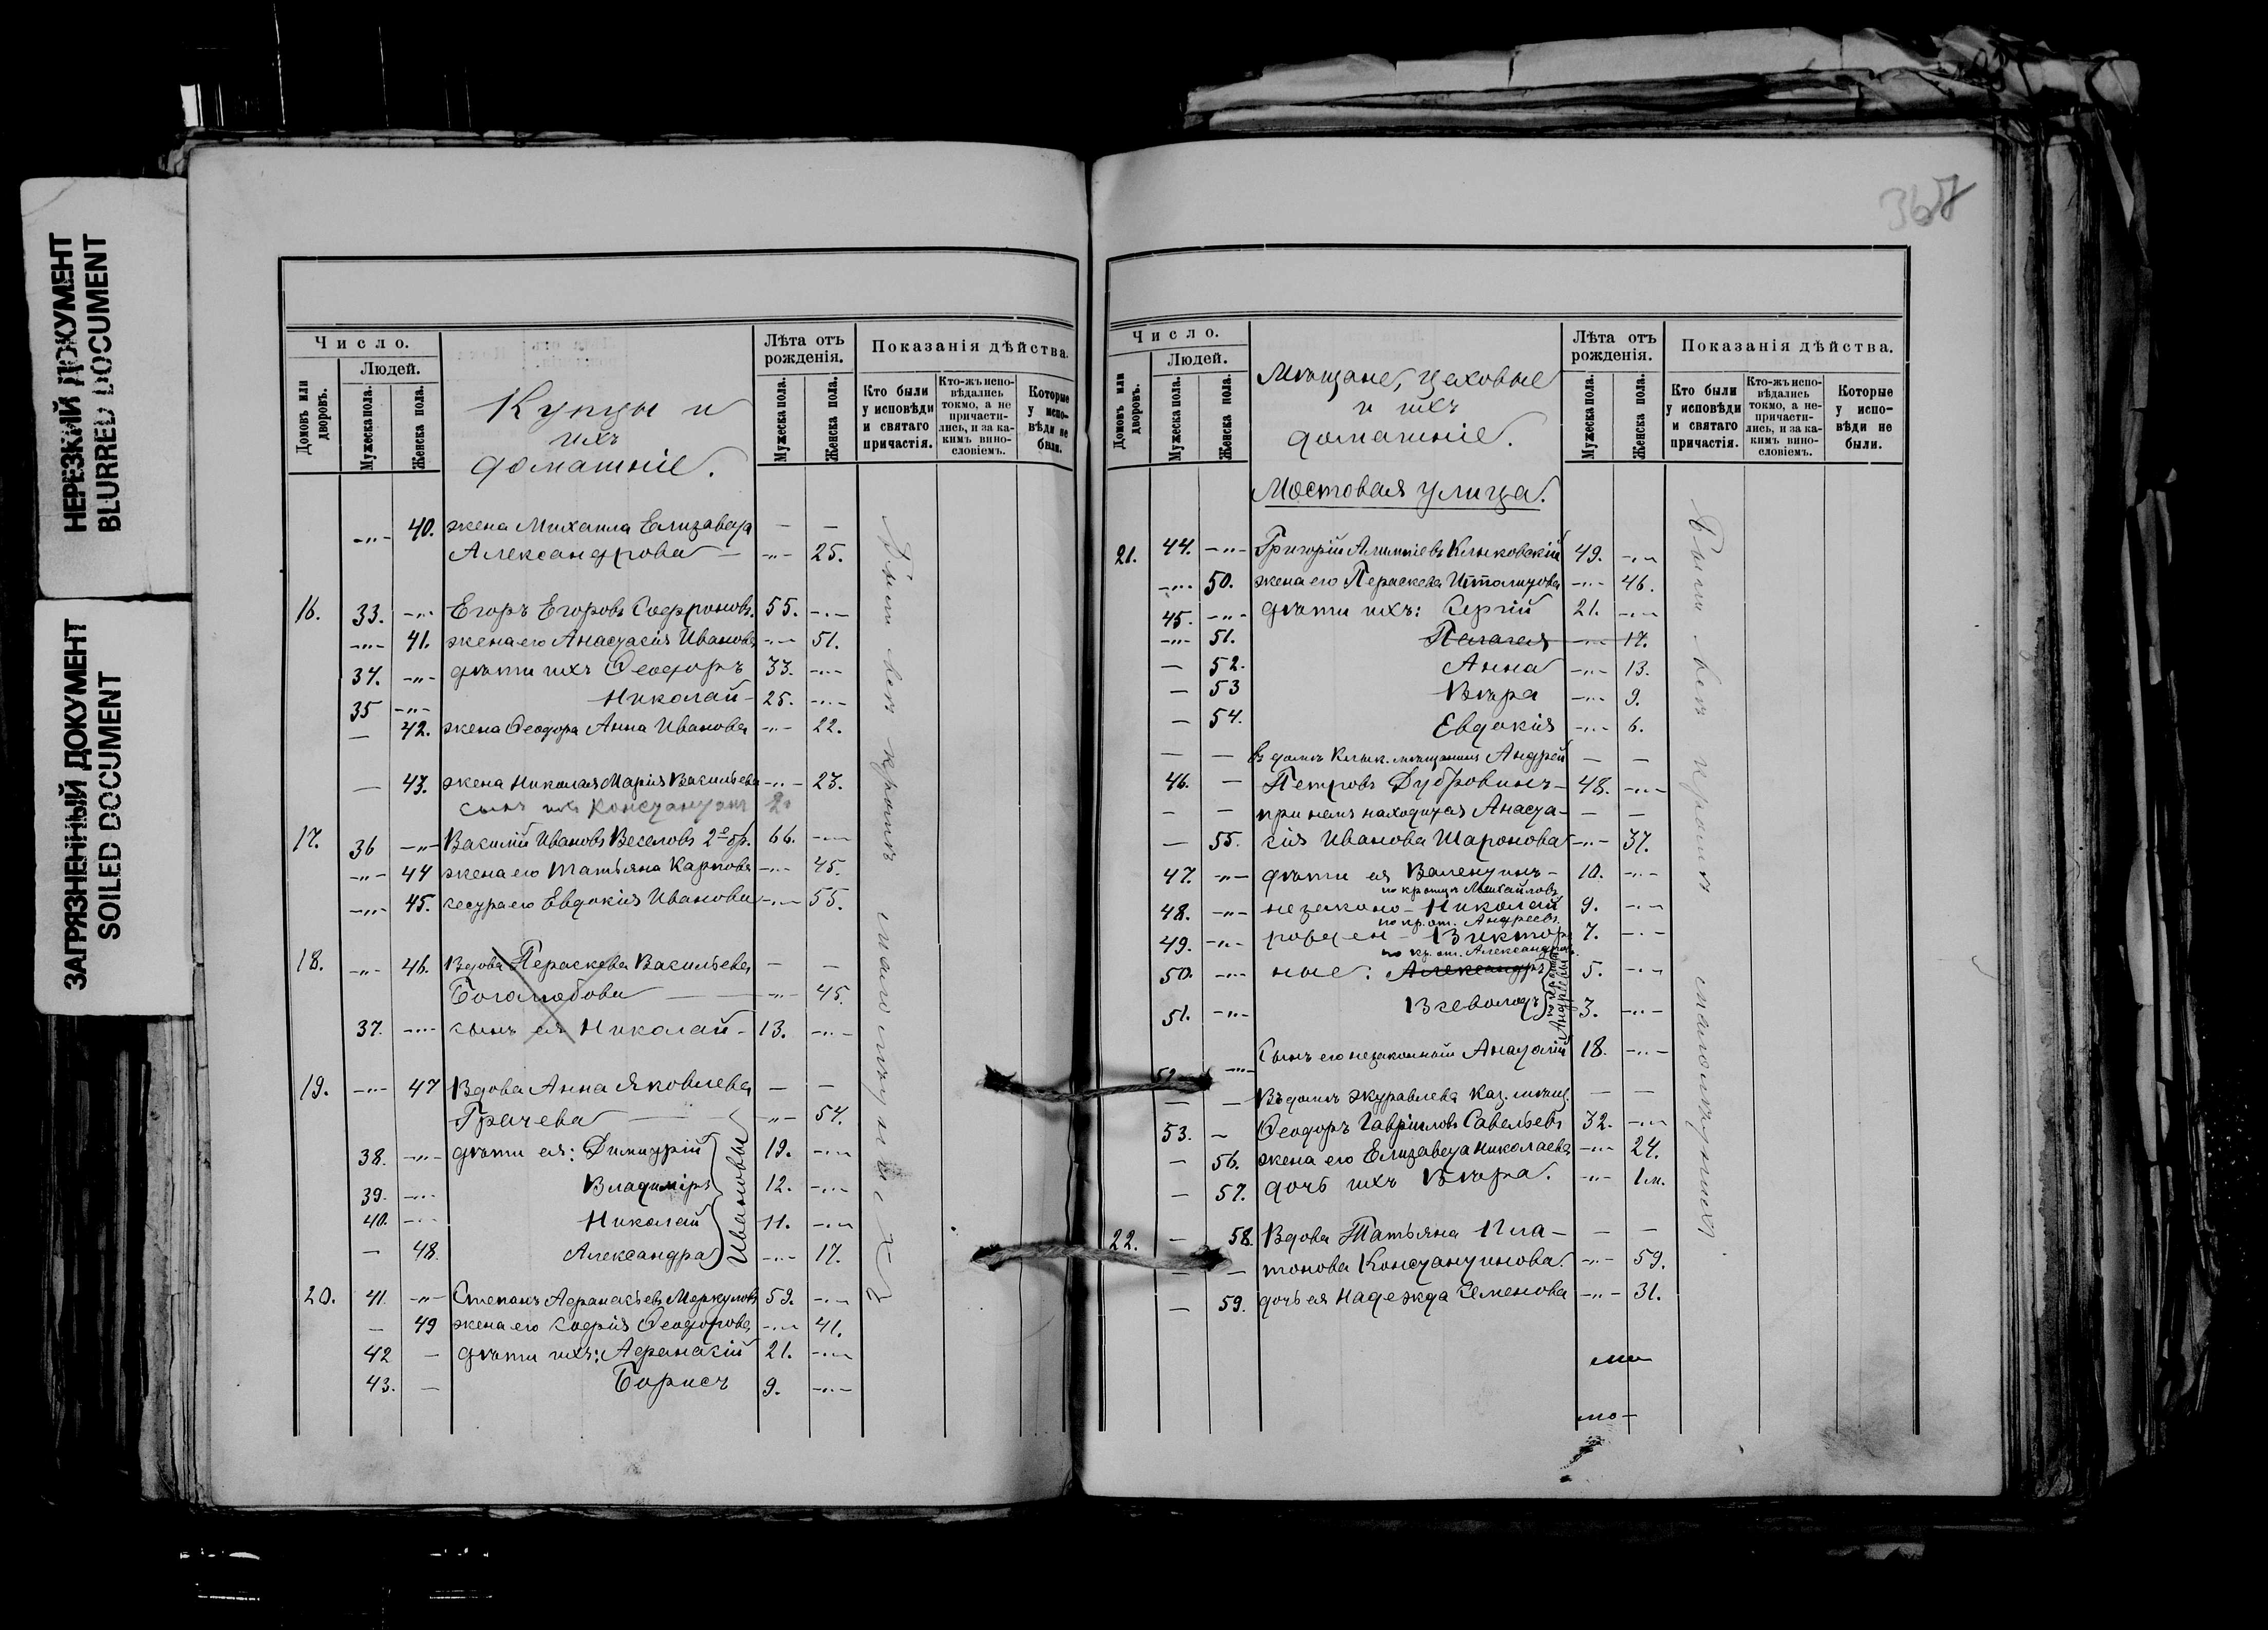 НЕРЕЗКИЙ ДОКУМЕНТ
BLURRED DOCUMENT
ЗАГРЯЗНЕННЫЙ ДОКУМЕНТ
SOILED DOCUMENT
Число.
Людей.
Домовъ или дворовъ.
Мужеска пола.
Женска пола.
Купцы и
ихъ
домашніе.
Лѣта отъ рожденія.
Мужеска пола.
Женска пола.
Показанія дѣйства.
Кто были у исповѣди и святаго причастія.
Кто-жъ исповѣдались токмо, а не причастились, и за какимъ винословіемъ.
Которые у исповѣди не были.
-„- 40. жена Михаила Елизавета — —
Александрова — -„- 25.
16. 33. -„- Егоръ Егоровъ Софроновъ. 55. -„-
-„- 41. жена его Анастасія Иванова -„- 51.
34. -„- дѣти ихъ Ѳеодоръ 33. -„-
35 -„- Николай - 25. -„-
— 42. жена Ѳеодора Анна Иванова -„- 22.
— 43. жена Николая Марія Васильева -„- 23.
сынъ ихъ Константинъ 2.
17. 36 -„- Василій Ивановъ Веселовъ 2е бр. 66. -„-
-„- 44 жена его Татьяна Карпова -„- 45.
-„- 45. сестра его Евдокія Иванова -„- 55.
18. -„- 46. Вдова Параскева Васильева — —
Боголюбова — -„- 45.
37. -„- сынъ ея Николай - 13. -„-
19. -„- 47 Вдова Анна Яковлева — —
Грачева — -„- 54.
38. -„- дѣти ея: Димитрій 19. -„-
39. -„- Владиміръ 12. -„-
40. -„- Николай 11. -„-
— 48. Александра -„- 17.
Ивановы
20. 41. -„- Степанъ Аѳанасьевъ Меркуловъ 59. -„-
— 49 жена его Софія Ѳеодорова -„- 41.
42 — дѣти ихъ: Аѳанасій 21. -„-
43. — Борисъ 9. -„-
всѣ кромѣ
367
Число.
Людей.
Домовъ или дворовъ.
Мужеска пола.
Женска пола.
Мѣщане, цеховые
и ихъ
домашніе.
Лѣта отъ рожденія.
Мужеска пола.
Женска пола.
Показанія дѣйства.
Кто были у исповѣди и святаго причастія.
Кто-жъ исповѣдались токмо, а не-причастились, и за какимъ винословіемъ.
Которые у исповѣди не были.
Мостовая улица.
21. 44. -„- Григорій Клыковскій 49. -„-
-„- 50. жена его Параскева Ипполитова -„- 46.
45. -„- дѣти ихъ: Сергій 21. -„-
-„- 51. Пелагея -„- 17.
— 52. Анна -„- 13.
— 53 Вѣра -„- 9.
— 54. Евдокія -„- 6.
— — въ домѣ Клык. мѣщанинъ Андрей — —
46. — Петровъ Дубровинъ - 48. -„-
— — при немъ находится Анаста- — —
— 55. сія Иванова Шаронова -„- 37.
47. -„- дѣти ея Валентинъ - 10. -„-
по крестн. Михайловъ
48. -„- незаконо- Николай 9. -„-
по кр. от. Андреевъ
49. -„- рожден- Викторъ 7. -„-
по кр. от. Александров.
50. -„- ные: Александръ 5. -„-
51. -„- Всеволодъ 3. -„-
Андреевы
52. -„- Сынъ его незаконный Анатолій 18. -„-
— — Въ домѣ Журавлева Каз. мѣщ. — —
53. — Ѳеодоръ Гавріиловъ Савельевъ 32. -„-
— 56. жена его Елизавета Николаева -„- 24.
— 57. дочь ихъ Вѣра. -„- 1 м.
22. — 58. Вдова Татьяна Пла- — —
— — тонова Константинова. -„- 59.
— 59. дочь ея Надежда Семенова -„- 31.
Были всѣ кромѣ малолѣтнихъ.